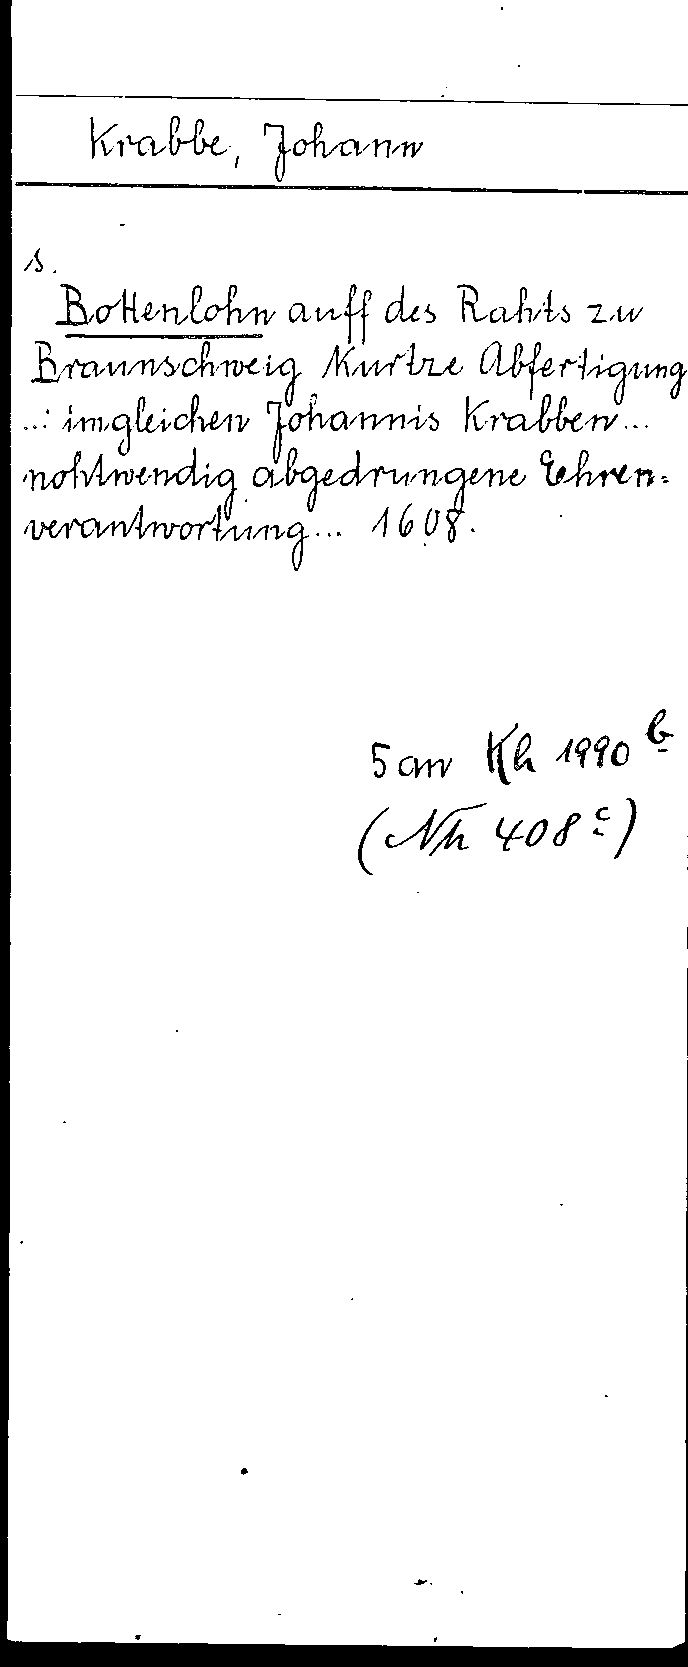 Krabbe, Johann
s.
Bottenlohn auff des Rahts zu
Braunschweig Kurtze Abfertigung
..: imgleichen Johannis Krabben...
nohtwendig abgedrungene Ehren=
verantwortung... 1608.
5 an Kh 1990 b
(Nh 408 c)